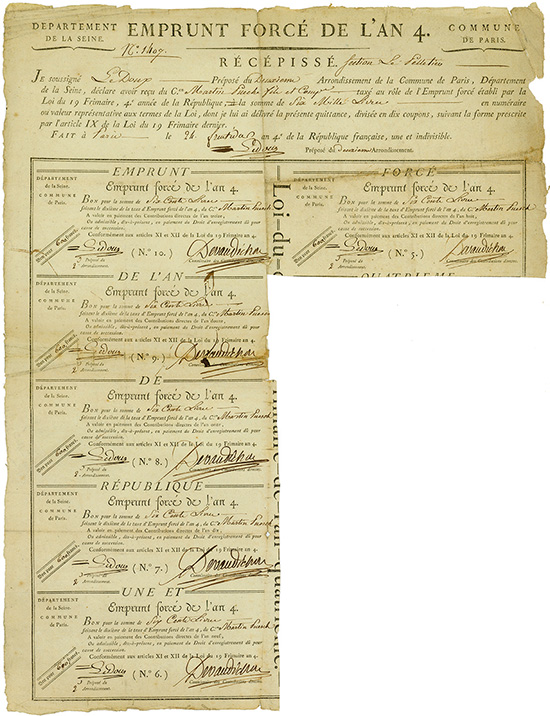 DÉPARTEMENT
DE LA SEINE.
EMPRUNT FORCÉ DE L'AN 4.
COMMUNE
DE PARIS.
N.º 1407.
RÉCÉPISSÉ, Section Le Pelletier
JE soussigné LeDoux Préposé du Deuxieme Arrondissement de la Commune de Paris, Département
de la Seine, déclare avoir reçu du C.en Martin fils et Comp.e taxé au rôle de l'Emprunt forcé établi par la
Loi du 19 Frimaire, 4.e année de la République, la somme de Six Mille Livres en numéraire
ou valeur représentative aux termes de la Loi, dont je lui ai délivré la présente quittance, divisée en dix coupons, suivant la forme prescrite
par l'article IX de la Loi du 19 Frimaire dernier.
FAIT à Paris le 26 an 4.e de la République française, une et indivisible.
LeDoux Préposé du deuxieme Arrondissement.
EMPRUNT
DÉPARTEMENT
de la Seine.
COMMUNE
de Paris.
Emprunt forcé de l'an 4.
BON pour la somme de Six Cents Livres
faisant le dixième de la taxe d'Emprunt forcé de l'an 4, du C.en Martin
A valoir en paiement des Contributions directes de l'an
Ou admissible, dès-à-présent, en paiement du Droit d'enregistrement dû pour
cause de succession.
Conformément aux articles XI et XII de la Loi du 19 Frimaire an 4.
Bon pour 600 francs.
LeDoux (N.º 10.)
Préposé du
2 Arrondissement.
Commissaire des Contributions directes.
FORCÉ
DÉPARTEMENT
de la Seine.
COMMUNE
de Paris.
Emprunt forcé de l'an 4.
BON pour la somme de Six Cents Livres
faisant le dixième de la taxe d'Emprunt forcé de l'an 4, du C.en Martin
A valoir en paiement des Contributions directes de l'an
Ou admissible, dès-à-présent, en paiement du Droit d'enregistrement dû pour
cause de succession.
Conformément aux articles XI et XII de la Loi du 19 Frimaire an 4.
Bon pour 600 francs.
LeDoux (N.º 5.)
Préposé du
2 Arrondissement.
Commissaire des Contributions directes.
QUATRIEME
Loi-du
DE L'AN
DÉPARTEMENT
de la Seine.
COMMUNE
de Paris.
Emprunt forcé de l'an 4.
BON pour la somme de Six Cents Livres
faisant le dixième de la taxe d'Emprunt forcé de l'an 4, du C.en Martin
A valoir en paiement des Contributions directes de l'an douze,
Ou admissible, dès-à-présent, en paiement du Droit d'enregistrement dû pour
cause de succession.
Conformément aux articles XI et XII de la Loi du 19 Frimaire an 4.
Bon pour 600 francs.
LeDoux (N.º 9.)
Préposé du
2 Arrondissement.
Commissaire des Contributions directes.
DE
DÉPARTEMENT
de la Seine.
COMMUNE
de Paris.
Emprunt forcé de l'an 4.
BON pour la somme de Six Cents Livres
faisant le dixième de la taxe d'Emprunt forcé de l'an 4, du C.en Martin
A valoir en paiement des Contributions directes de l'an onze,
Ou admissible, dès-à-présent, en paiement du Droit d'enregistrement dû pour
cause de succession.
Conformément aux articles XI et XII de la Loi du 19 Frimaire an 4.
Bon pour 600 francs.
LeDoux (N.º 8.)
Préposé du
2 Arrondissement.
Commissaire des Contributions directes.
RÉPUBLIQUE
DÉPARTEMENT
de la Seine.
COMMUNE
de Paris.
Emprunt forcé de l'an 4.
BON pour la somme de Six Cents Livres
faisant le dixième de la taxe d'Emprunt forcé de l'an 4, du C.en Martin
A valoir en paiement des Contributions directes de l'an dix,
Ou admissible, dès-à-présent, en paiement du Droit d'enregistrement dû pour
cause de succession.
Conformément aux articles XI et XII de la Loi du 19 Frimaire an 4.
Bon pour 600 francs.
LeDoux (N.º 7.)
Préposé du
2 Arrondissement.
Commissaire des Contributions directes.
UNE ET
DÉPARTEMENT
de la Seine.
COMMUNE
de Paris.
Emprunt forcé de l'an 4.
BON pour la somme de Six Cents Livres
faisant le dixième de la taxe d'Emprunt forcé de l'an 4, du C.en Martin
A valoir en paiement des Contributions directes de l'an neuf,
Ou admissible, dès-à-présent, en paiement du Droit d'enregistrement dû pour
cause de succession.
Conformément aux articles XI et XII de la Loi du 19 Frimaire an 4.
Bon pour 600 francs.
LeDoux (N.º 6.)
Préposé du
2 Arrondissement.
Commissaire des Contributions directes.